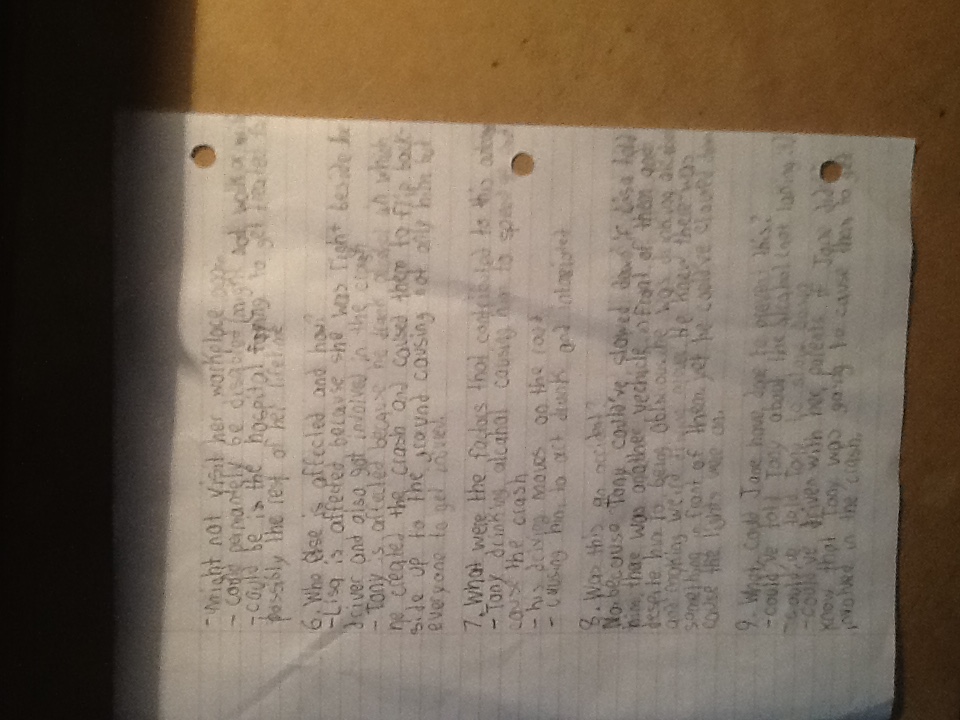 - might not visit her workplace
- could permantely be disabled (might not walk or
- could be is the hospital to get treated
possibly the rest of her lifetime
6. Who else is affected and how?
- Lisa is affected because she was right beside the
driver and also got involved in the crash
- Tony is affected because he drank alcahol in which
he created the crash and caused them to flip back-
side up to the ground causing not only him but
everyone to get injured.
7. What were the factors that contributed to this
- Tony drinking alcahol causing him to speed
cause the crash
- his driving moves on the road
- causing him to act drunk and
8. Was this an accident?
No because Tony could've slowed down Lisa told
him there was another vechicle front of them and
despite him being oblivious he was drinking
and weird driving moves He knew there was
something in front of them yet he could've slowed down
cause the lights were on.
9. What could Jane have done to prevent this?
- could've told Tony about the alcahol (not
- could've told Tony to slow down
- could've driven with her parents if Jane
know that Tony was going to cause them to get
involved in the crash.